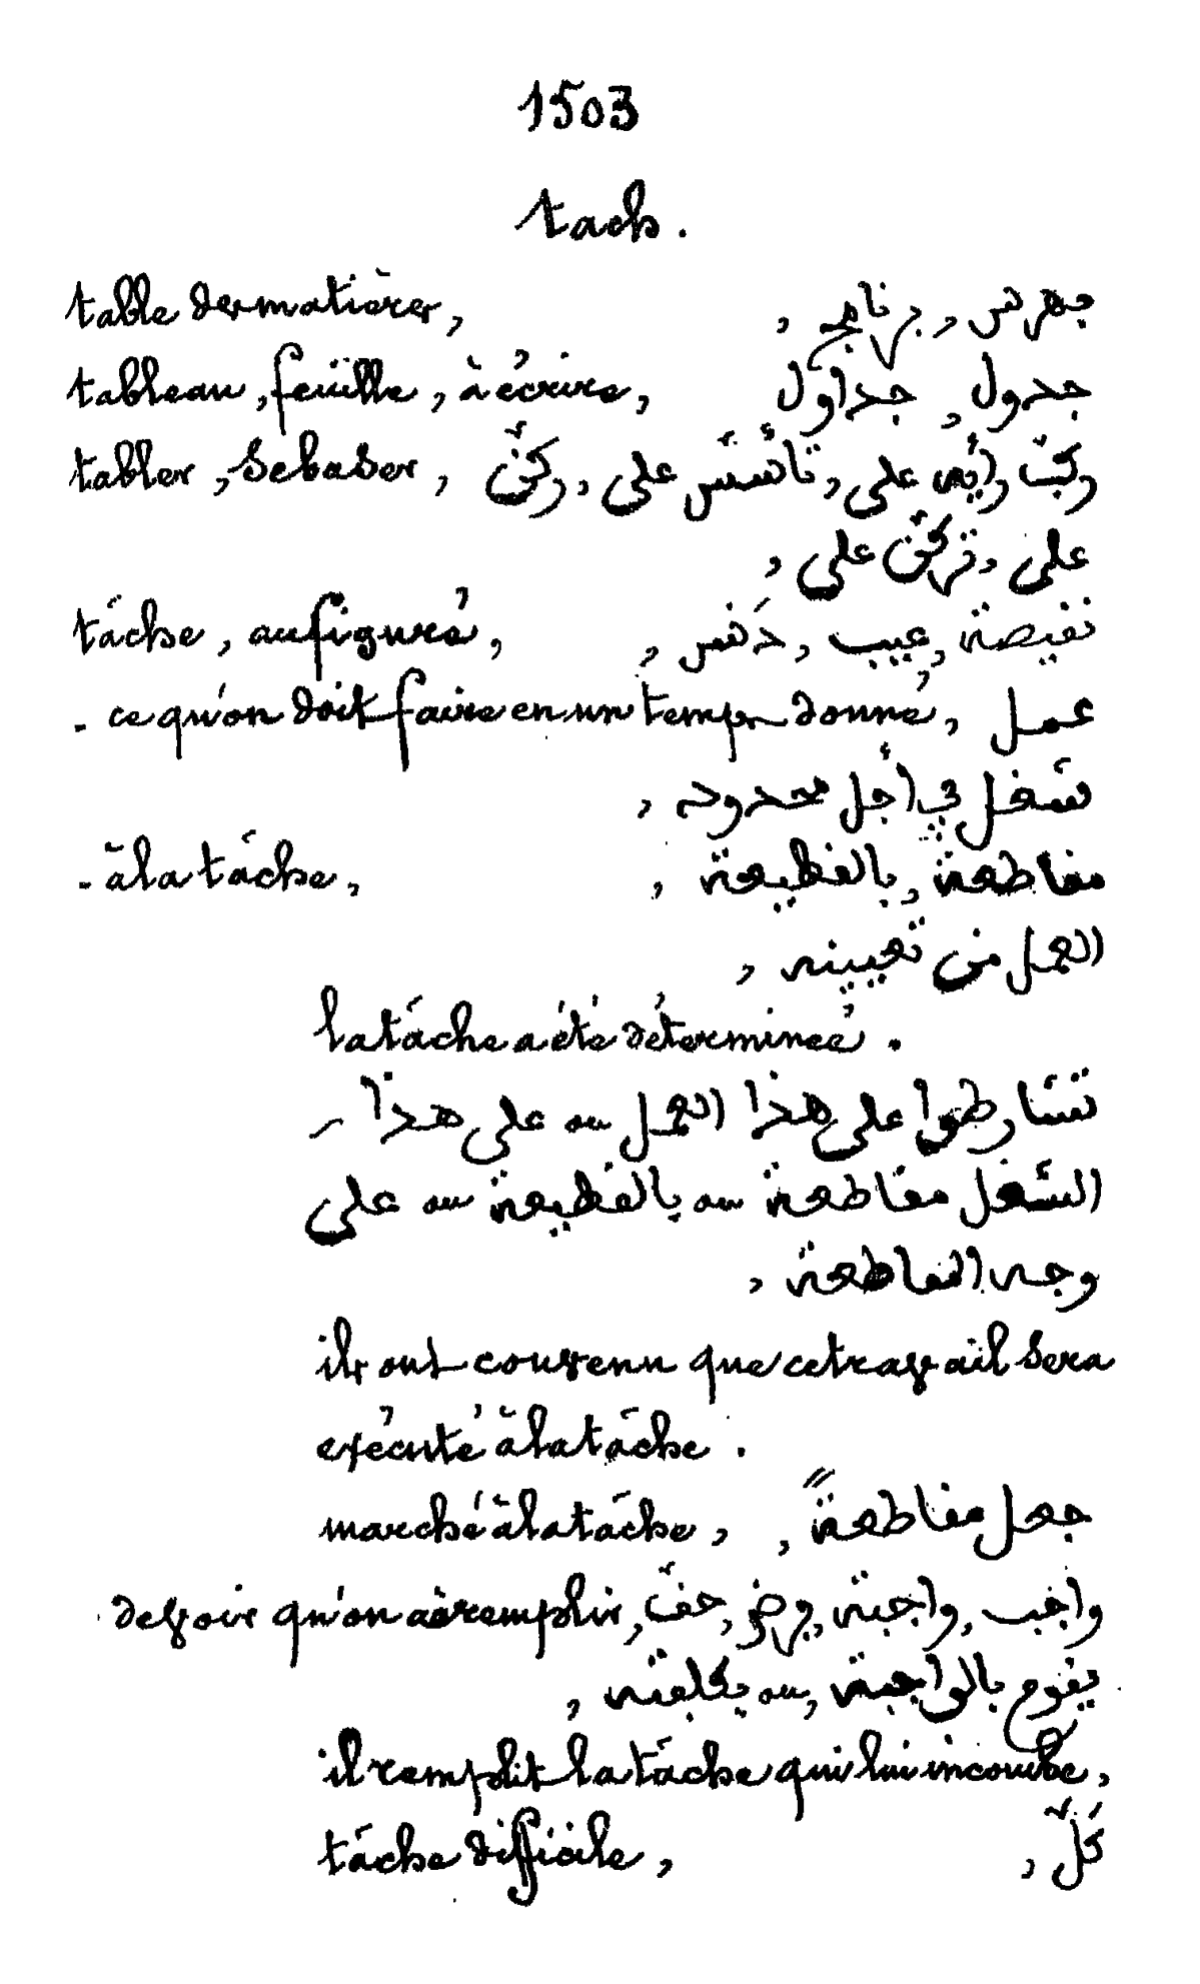 1503
tach.
table des matières, جهرس, برنامج,
tableau, feuille, à écrire, جدول, جداول,
tabler, se baser, على, تأسّس على, ركن,
على, تركّن على,
tâche, au figuré, نقيصة, عيب, دَنس,
- ce qu'on doit faire en un temps donné, عمل
شغل في أجل محدود,
- à la tâche, مقاطعة, بالقطيعة,
العمل من تعيينه,
la tâche a été déterminée.
تشارطوا على هذا العمل ou على هذا
الشغل مقاطعة ou بالقطيعة ou على
وجه المقاطعة,
ils ont convenu que ce travail sera
exécuté à la tâche.
marché à la tâche, جعل مقاطعةً,
devoir qu'on a à remplir, واجب, واجبة, فرض, حقّ,
يقوم بالواجبة, ou بكلفته,
il remplit la tâche qui lui incombe,
tâche difficile, كَلّ,